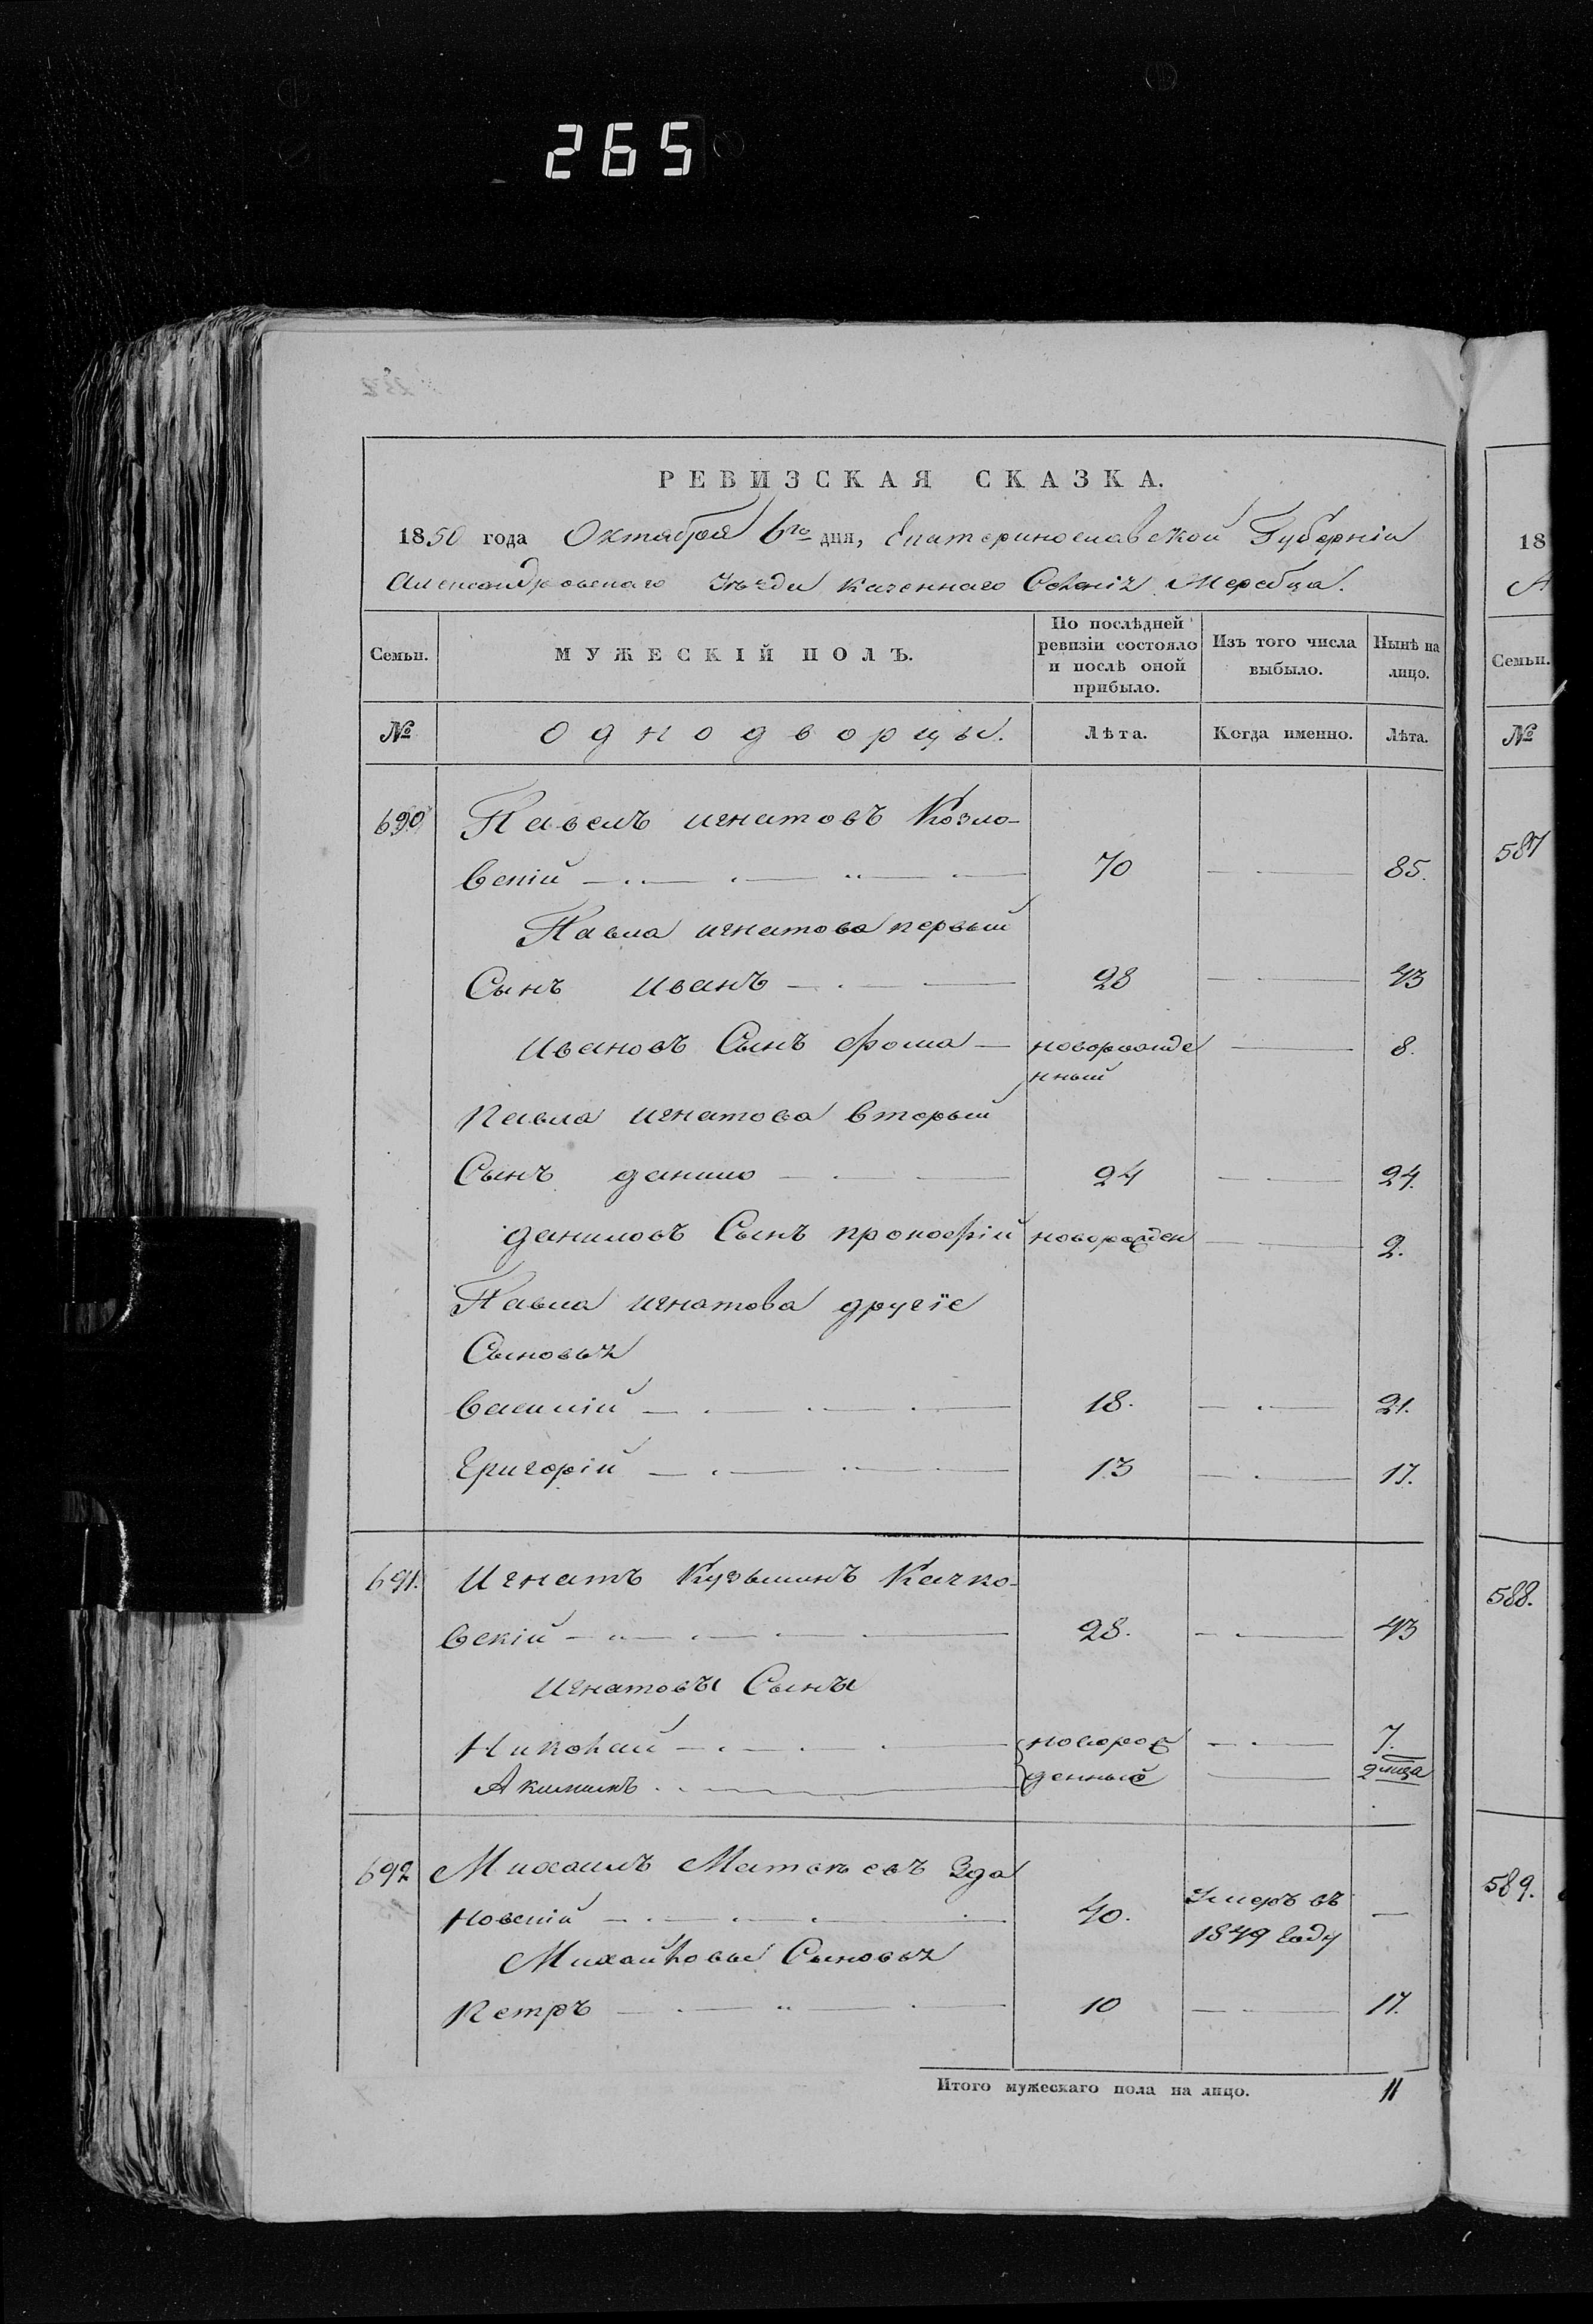 265
РЕВИЗСКАЯ СКАЗКА.
1850 года Октября 6го дня, Екатеринославской Губерніи
Александровскаго Уѣзда казеннаго Селенія Жеребца.
Семьи.
МУЖЕСКІЙ ПОЛЪ.
По послѣдней
ревизіи состояло
и послѣ оной
прибыло.
Изъ того числа
выбыло.
Нынѣ на
лицо.
№ Однодворцы. Лѣта. Когда именно. Лѣта.
690 Павелъ игнатовъ Козло-
вскій 70 85.
Павла игнатова первый
Сынъ иванъ 28 43
ивановъ Сынъ фома новорожде 8.
нный
Павла игнатова вторый
Сынъ данило 24 24.
даниловъ Сынъ прокофій новорожден 2.
Павла игнатова другіе
Сыновья
Василій 18. 21.
Григорій 13 17.
691. Игнатъ Кузьминъ Качко-
вскій 28. 43
игнатовы Сыны
Николай новорож 7.
Акимъ денные
692 Михаилъ Матвѣевъ Зда
новскій 40. Умеръ въ —
1849 Году
Михайловы Сыновья
Петръ 10 17.
Итого мужескаго пола на лицо. 11
18
А
Семьи.
№
587
588.
589.